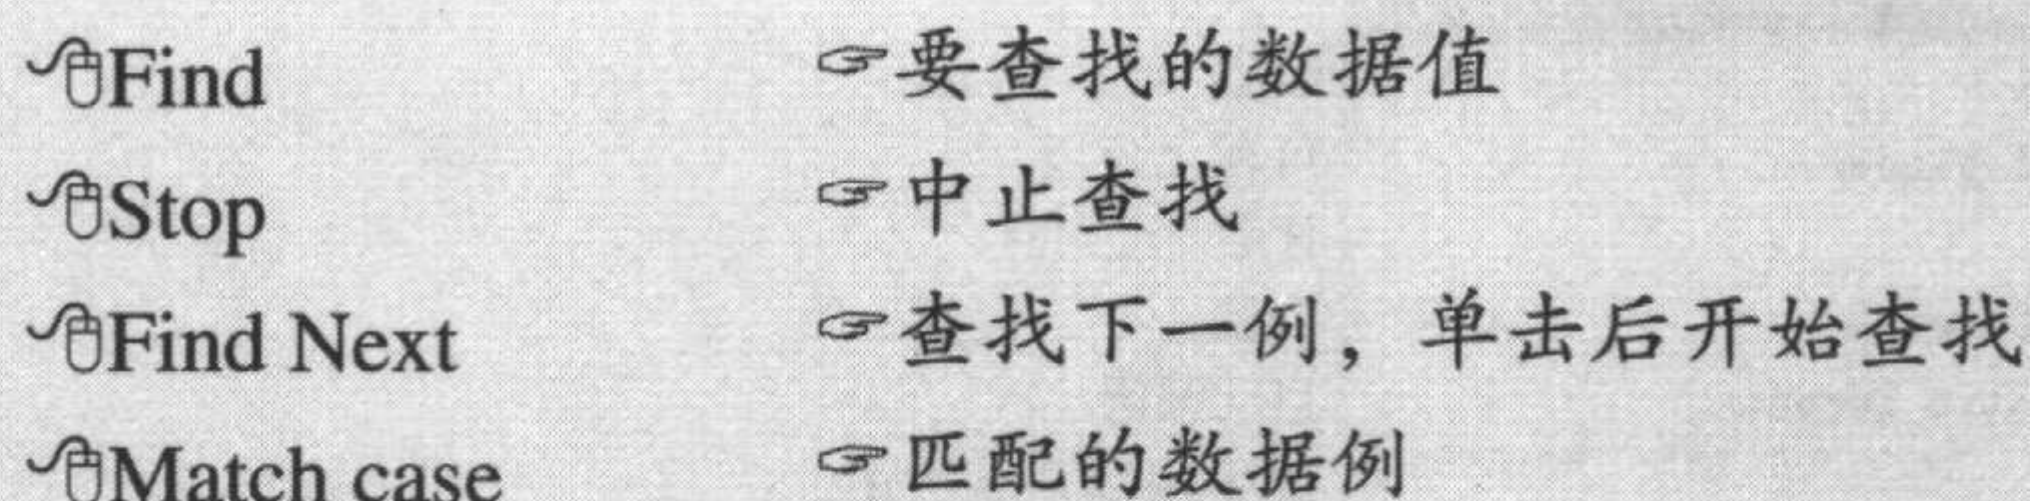 🖰Find ☞要查找的数据值
🖰Stop ☞中止查找
🖰Find Next ☞查找下一例，单击后开始查找
🖰Match case ☞匹配的数据例